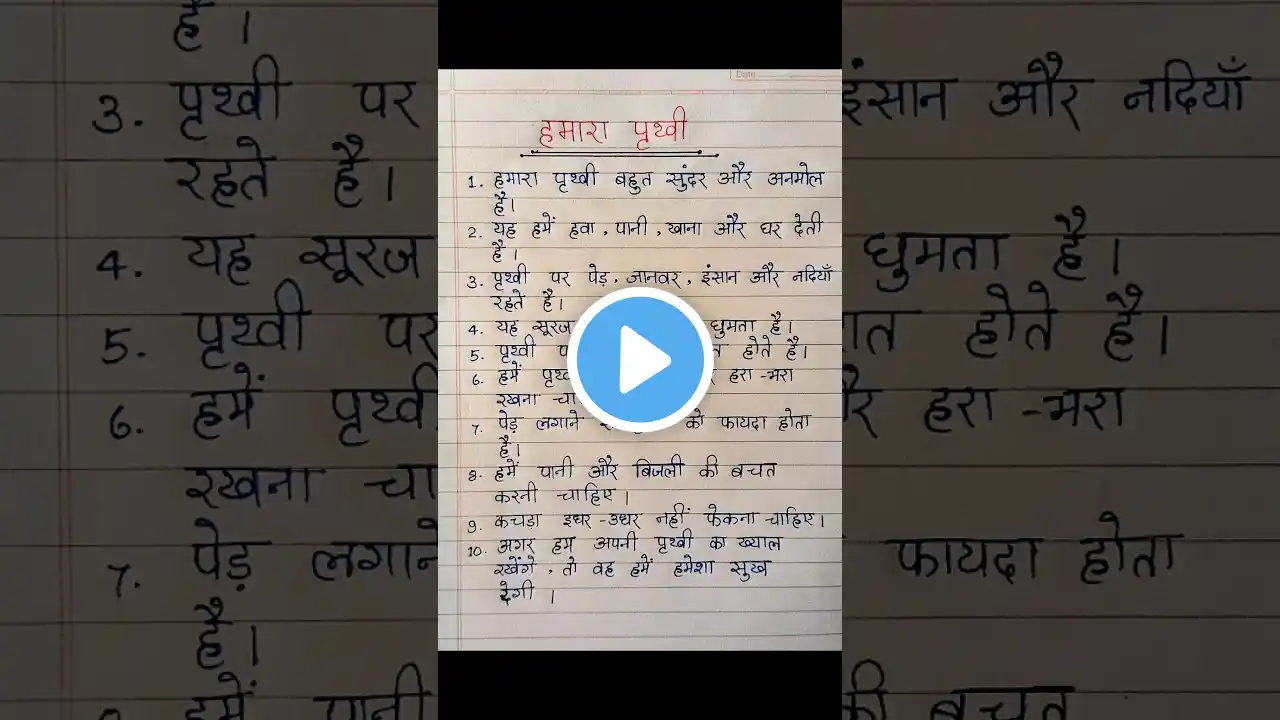 Date
हमारा पृथ्वी
1. हमारा पृथ्वी बहुत सुंदर और अनमोल
है।
2. यह हमें हवा , पानी , खाना और घर देती
है ।
3. पृथ्वी पर पेड़ , जानवर , इंसान और नदियाँ
रहते है।
4. यह सूरज घुमता है।
5. पृथ्वी होते है।
6. हमें हरा -भरा
रखना
7. पेड़ लगाने को फायदा होता
है।
8. हमें पानी और बिजली की बचत
करनी चाहिए ।
9. कचड़ा इधर -उधर नहीं फेकना चाहिए।
10. अगर हम अपनी पृथ्वी का ख्याल
रखेंगे , तो वह हमें हमेशा सुख
देगी ।